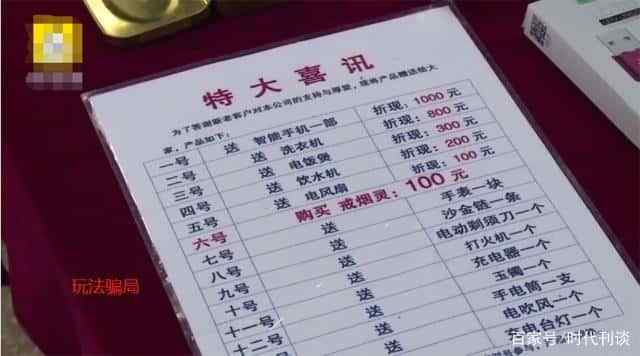 特大喜讯
为了答谢新老客户对本公司的支持与厚爱，现将产品赠送给大
家，产品如下：
一号 送 智能手机一部 折现：1000元
二号 送 洗衣机 折现：800元
三号 送 电饭煲 折现：300元
四号 送 饮水机 折现：200元
五号 送 电风扇 折现：100元
六号 购买 戒烟灵：100元
七号 送 手表一块
八号 送 沙金链一条
九号 送 电动剃须刀一个
十号 送 打火机一个
十一号 送 充电器一个
十二号 送 玉镯一个
送 手电筒一支
送 电吹风一个
台灯一个
玩法骗局
百家号/时代刊谈